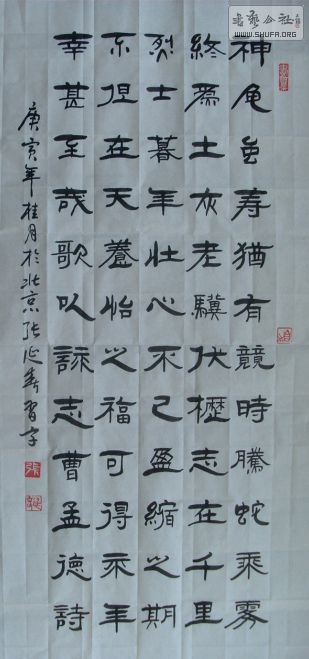 書藝公社
WWW.SHUFA.ORG
神龟虽寿猶有競時騰蛇乘雾
終爲土灰老驥伏櫪志在千里
烈士暮年壮心不已盈縮之期
不但在天養怡之福可得永年
幸甚至哉歌以詠志曹孟德詩
庚寅年桂月於北京张延春習字